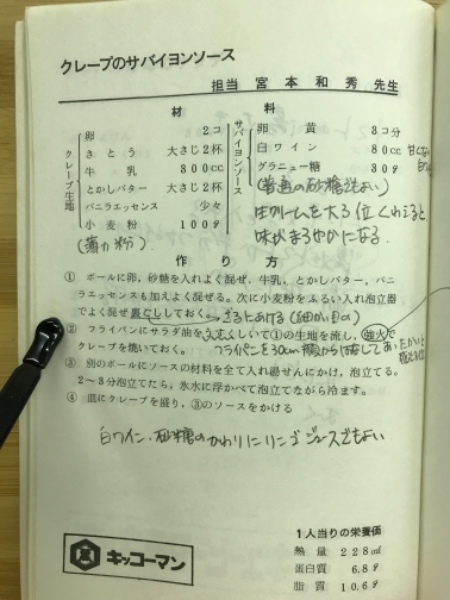 クレープのサバイヨンソース
担当 宮本和秀先生
材料
クレープ生地
卵 2コ
さとう 大さじ2杯
牛乳 300cc
とかしバター 大さじ2杯
バニラエッセンス 少々
小麦粉 100g
(薄力粉)
サバイヨンソース
卵黄 3コ分
白ワイン 80cc
グラニュー糖 80g
(普通の砂糖でもよい)
生クリームを大3位くわえると
味がまろやかになる
作り方
① ボールに卵，砂糖を入れよく混ぜ，牛乳，とかしバター，バニ
ラエッセンスも加えよく混ぜる。次に小麦粉をふるい入れ泡立器
でよく混ぜ裏ごししておく→ざるにあける(細かい目の)
② フライパンにサラダ油をしいて①の生地を流し，強火で
クレープを焼いておく。フライパンを30cm
③ 別のボールにソースの材料を全て入れ湯せんにかけ，泡立てる。
2〜3分泡立てたら，氷水に浮かべて泡立てながら冷ます。
④ 皿にクレープを盛り，③のソースをかける
白ワイン、砂糖のかわりにリンゴジュースでもよい
キッコーマン
1人当りの栄養価
熱量 228ml
蛋白質 6.8g
脂質 10.6g